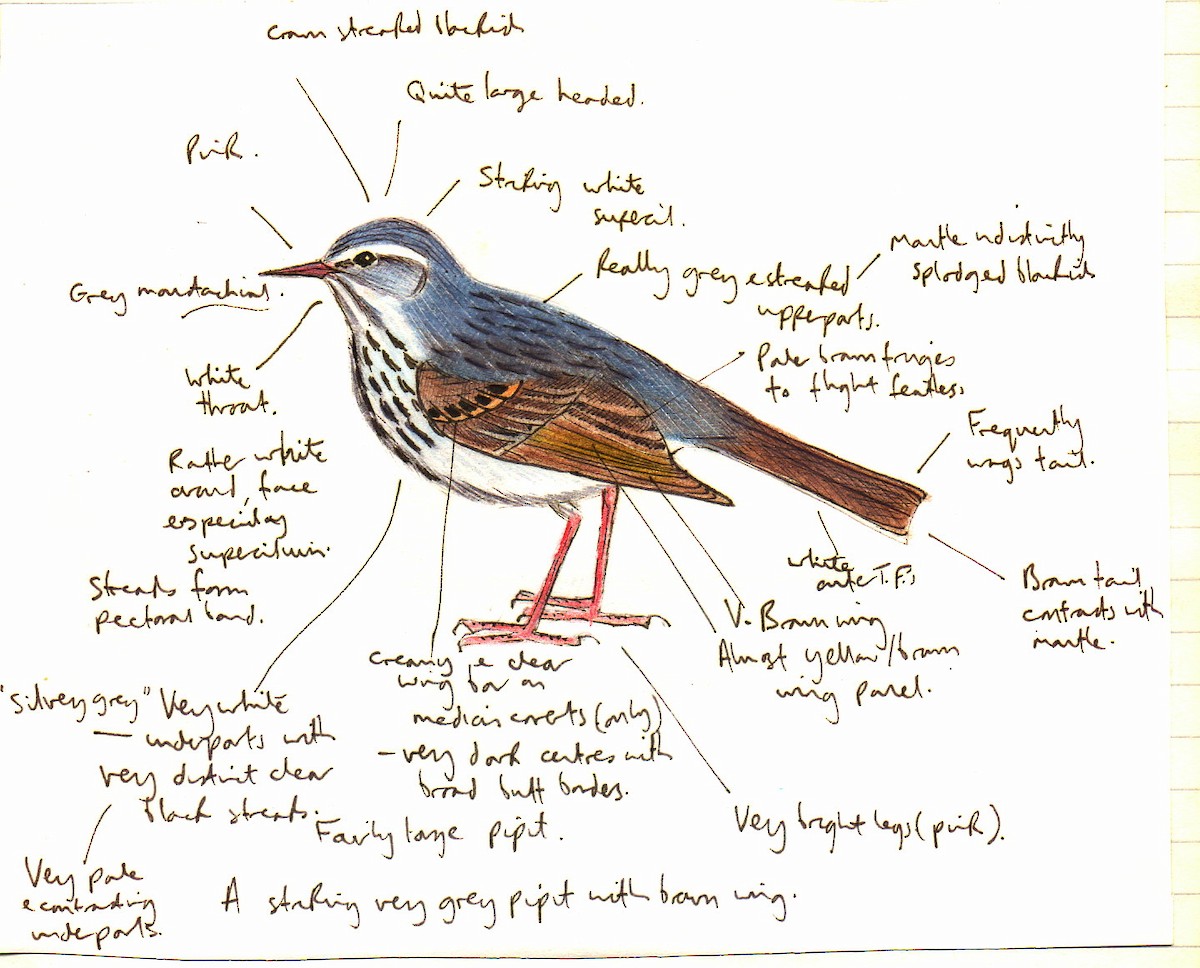 Crown streaked blackish
Quite large headed.
Pink.
Striking white
supercil.
Really grey & streaked
upperparts.
Mantle indistinctly
splodged blackish
Grey moustachial.
Pale brown fringes
to flight feathers
White
throat.
Frequently
wags tail.
Rather white
around, face
especially
supercilium.
Streaks form
pectoral band.
white
outer T.F's
Brown tail
contrasts with
mantle.
V. Brown wing
Almost yellow/brown
wing panel.
creamy & clear
wing bar on
median coverts (only)
- very dark centres with
broad buff borders.
"Silvery grey" Very white
underparts with
very distinct clear
black streaks.
Very bright legs (pink).
Fairly large pipit.
Very pale
& contrasting
underparts.
A striking very grey pipit with brown wing.